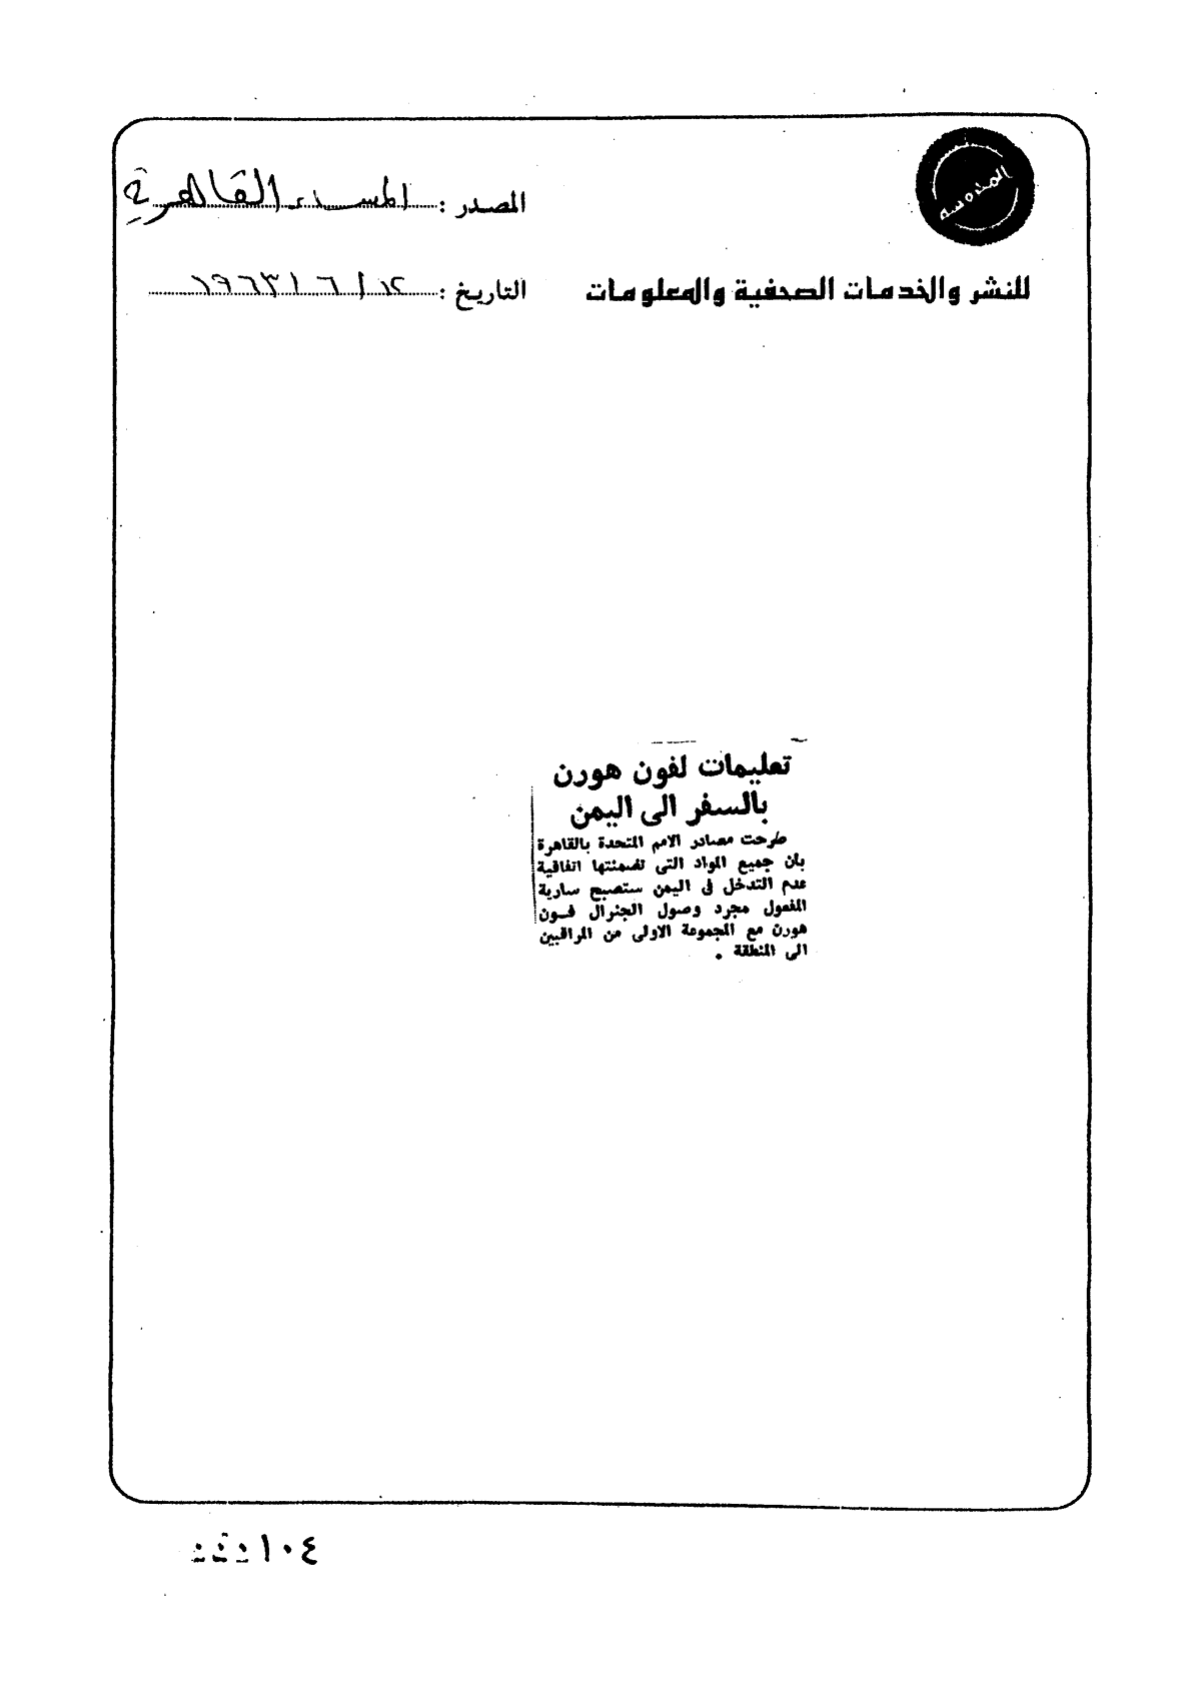 المصدر : المساء القاهرية
للنشر والخدمات الصحفية والمعلومات
التاريخ : ١٢ / ٦ / ١٩٦٣
تعليمات لفون هورن
بالسفر الى اليمن
طرحت مصادر الامم المتحدة بالقاهرة
بان جميع المواد التى تضمنتها اتفاقية
عدم التدخل فى اليمن ستصبح سارية
المفعول مجرد وصول الجنرال فـون
هورن مع المجموعة الاولى من المراقبين
الى المنطقة .
١٠٤